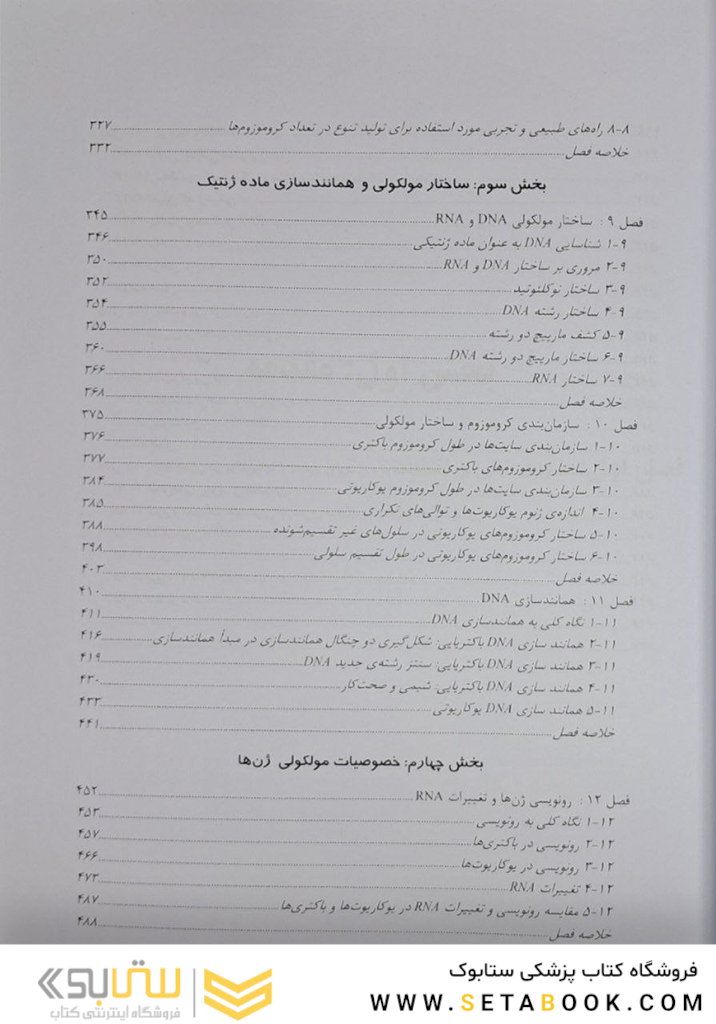 ۸-۸ راه‌های طبیعی و تجربی مورد استفاده برای تولید تنوع در تعداد کروموزوم‌ها ۳۲۷
خلاصه فصل ۳۳۲
بخش سوم: ساختار مولکولی و همانندسازی ماده ژنتیک
فصل ۹ : ساختار مولکولی DNA و RNA ۳۴۵
۱-۹ شناسایی DNA به عنوان ماده ژنتیکی ۳۴۶
۲-۹ مروری بر ساختار DNA و RNA ۳۵۰
۳-۹ ساختار نوکلئوتید ۳۵۲
۴-۹ ساختار رشته DNA ۳۵۴
۵-۹ کشف مارپیچ دو رشته ۳۵۵
۶-۹ ساختار مارپیچ دو رشته DNA ۳۶۰
۷-۹ ساختار RNA ۳۶۶
خلاصه فصل ۳۶۸
فصل ۱۰ : سازمان‌بندی کروموزوم و ساختار مولکولی ۳۷۵
۱-۱۰ سازمان‌بندی سایت‌ها در طول کروموزوم باکتری ۳۷۶
۲-۱۰ ساختار کروموزوم‌های باکتری ۳۷۷
۳-۱۰ سازمان‌بندی سایت‌ها در طول کروموزوم یوکاریوتی ۳۸۴
۴-۱۰ اندازه‌ی ژنوم یوکاریوت‌ها و توالی‌های تکراری ۳۸۵
۵-۱۰ ساختار کروموزوم‌های یوکاریوتی در سلول‌های غیر تقسیم‌شونده ۳۸۸
۶-۱۰ ساختار کروموزوم‌های یوکاریوتی در طول تقسیم سلولی ۳۹۸
خلاصه فصل ۴۰۳
فصل ۱۱ : همانندسازی DNA ۴۱۰
۱-۱۱ نگاه کلی به همانندسازی DNA ۴۱۱
۲-۱۱ همانند سازی DNA باکتریایی: شکل‌گیری دو چنگال همانندسازی در مبدأ همانندسازی ۴۱۶
۳-۱۱ همانند سازی DNA باکتریایی: سنتز رشته‌ی جدید DNA ۴۱۹
۴-۱۱ همانند سازی DNA باکتریایی: شیمی و صحت‌کار ۴۳۰
۵-۱۱ همانند سازی DNA یوکاریوتی ۴۳۳
خلاصه فصل ۴۴۱
بخش چهارم: خصوصیات مولکولی ژن‌ها
فصل ۱۲ : رونویسی ژن‌ها و تغییرات RNA ۴۵۲
۱-۱۲ نگاه کلی به رونویسی ۴۵۳
۲-۱۲ رونویسی در باکتری‌ها ۴۵۷
۳-۱۲ رونویسی در یوکاریوت‌ها ۴۶۶
۴-۱۲ تغییرات RNA ۴۷۳
۵-۱۲ مقایسه رونویسی و تغییرات RNA در یوکاریوت‌ها و باکتری‌ها ۴۸۷
خلاصه فصل ۴۸۸
فروشگاه کتاب پزشکی ستابوک
WWW.SETABOOK.COM
ستابوک
فروشگاه اینترنتی کتاب